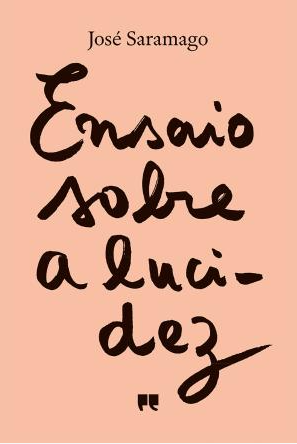 José Saramago
Ensaio
sobre
a luci-
dez